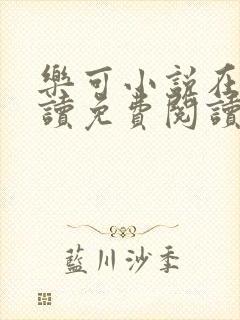 樂可小說在
讀免費閱讀
藍川沙季